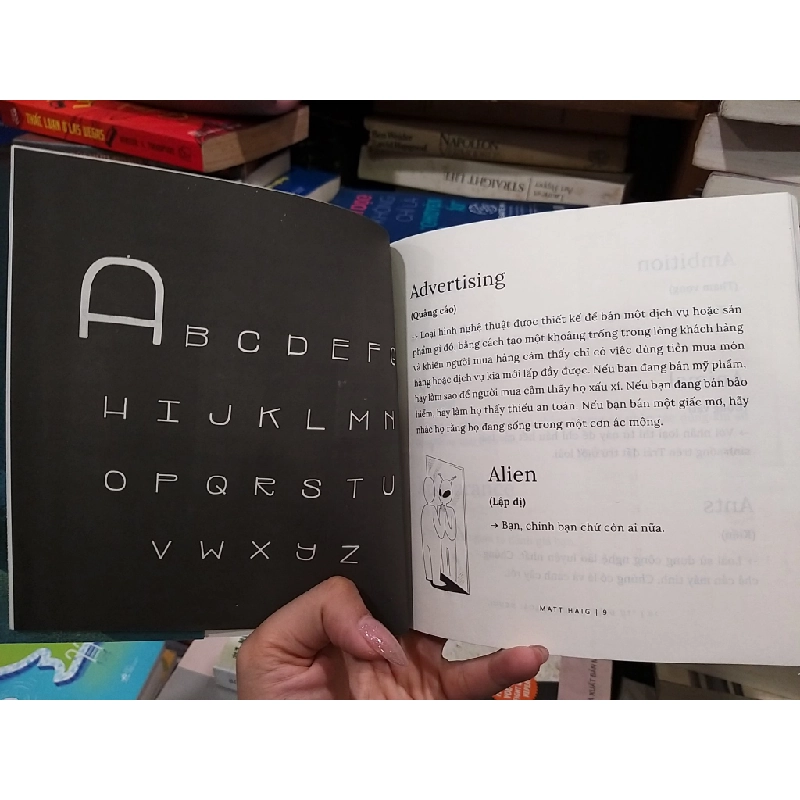 THÁC LOẠN Ở LAS VEGAS
NAPOLEON
STRAIGHT LIFE
A B C D E F G
H I J K L M N
O P Q R S T U
V W X Y Z
Advertising
(Quảng cáo)
→ Loại hình nghệ thuật được thiết kế để bán một dịch vụ hoặc sản
phẩm gì đó, bằng cách tạo một khoảng trống trong lòng khách hàng
và khiến người mua hàng cảm thấy chỉ có việc dùng tiền mua món
hàng hoặc dịch vụ kia mới lấp đầy được. Nếu bạn đang bán mỹ phẩm,
hãy làm sao để người mua cảm thấy họ xấu xí. Nếu bạn đang bán bảo
hiểm, hãy làm họ thấy thiếu an toàn. Nếu bạn bán một giấc mơ, hãy
nhắc họ rằng họ đang sống trong một cơn ác mộng.
Alien
(Lập dị)
→ Bạn, chính bạn chứ còn ai nữa.
MATT HAIG | 9